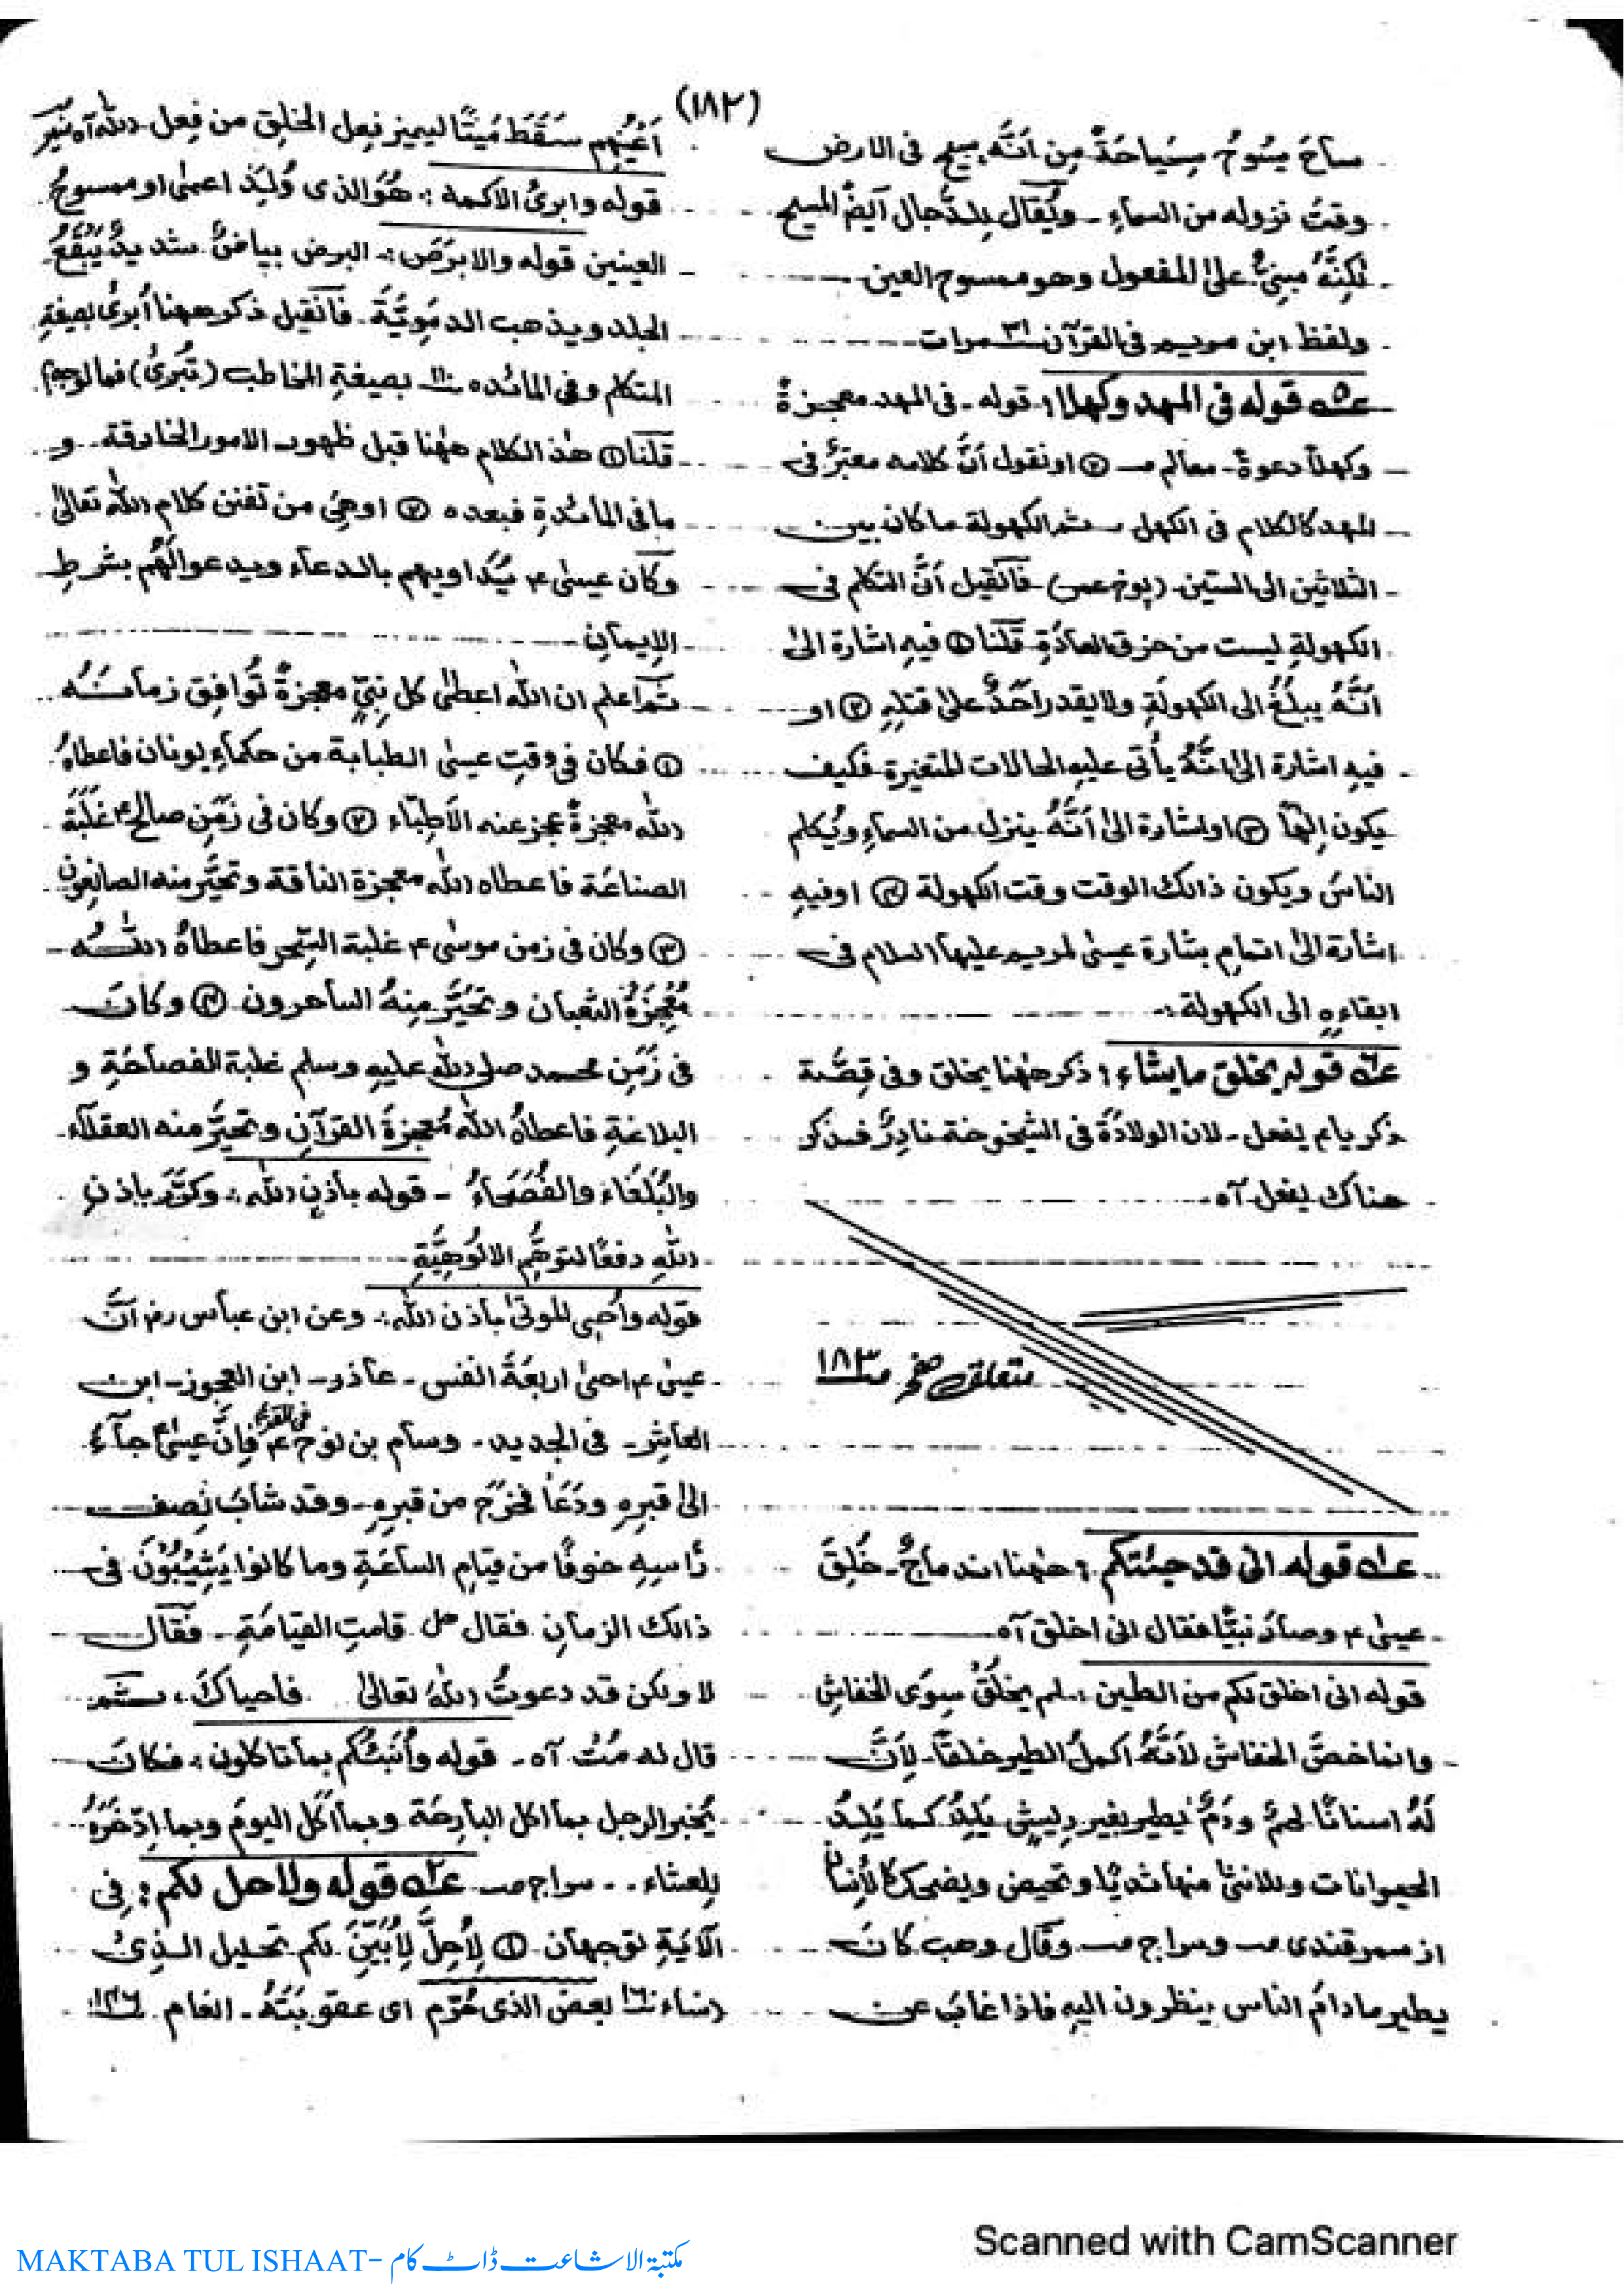 (١٨٢)
ساحَ يسُوحُ سِيَاحَةً مِن اَنَّه يسيح فى الارض
وقتَ نزوله من السماءِ ۔ ويُقال لِلدَّجال اَيضًا المسيح
لٰكِنَّهُ مبنِىٌّ علىٰ للمفعول وهو ممسوح العين
ولفظ ابن مريم فى القرآن ٣١ مرات
قوله فى المهد وكهلا : قوله ۔ فى المهد معجزةً
وكهلاً دعوةً ۔ معالم صـ ② او نقول اَنَّ كلامه معتبرٌ فى
المهد كالكلام فى الكهل ثم الكهولة ما كان بين
الثلاثين الى الستين ۔ فان قيل اَنَّ التكلم فى
الكهولةِ ليست من خرق العادَةِ قلنا ① فيهِ اشارة الىٰ
اَنَّهُ يبلغُ الى الكهولَةِ ولا يقدر اَحَدٌ علىٰ قتلِهٖ ② او
فيهِ اشارة الىٰ انَّهُ يأتى عليهِ الحالات المتغيرة فكيف
يكون اِلٰهًا ③ او اشارة الىٰ اَنَّهُ ينزل من السماءِ ويُكلم
الناسَ ويكون ذالك الوقت وقت الكهولة ④ او فيهِ
اشارة الىٰ اتمامِ بشارة عيسىٰ لمريم عليها السلام فى
ابقاءِهٖ الى الكهولة :۔
قوله يخلق ما يشاء : ذكر هٰهنا يخلق وفى قِصَّة
ذكريا ع يفعل ۔ لان الولادَةَ فى الشيخوخة نادِرٌ فذكر
هناك يفعل آه ۔
متعلق صفحه ١٨٣
قوله انى قد جئتكم : هٰهنا اندماجٌ ۔ خُلِقَ
عيسىٰ ع وصارَ نبيًّا فقال انى اخلق آه
قوله انى اخلق لكم من الطين :۔ لم يخلُقْ سِوَى الخفاش
وانما خصَّ الخفاش لاَنَّهُ اكملُ الطير خلقاً ۔ لِاَنَّ
لَهُ اسنانًا لحمٌ ودَمٌ يطير بغيرِ رِيشٍ يَلِدُ كما يَلِدُ
الحيوانات وللانثىٰ منها ثديًا وتحيض ويضحك كالأِنسان
از سمرقندى صـ وسراج صـ وقال وهب كانَ
يطير ما دامَ الناس ينظرون اليهِ فاذا غابَ عن
اَعْيُنِهِم سَقَطَ مَيتًا ليميز فِعل الخلق من فِعل الله آه
قوله وابرىُ الاكمه :۔ هُوَ الذى وُلِدَ اعمىٰ او ممسوحُ
العينين قوله والابرَصَ :۔ البرص بياضٌ شديدٌ يُبَقِّعُ
الجلد ويذهب الدمَوِيَّةَ ۔ فان قيل ذكر ههنا اُبرىُ بصيغةِ
المتكلم وفى المائده ١١٠ بصيغةِ المخاطب (تُبرىُ) فما الوجه
قلنا ① هٰذا الكلام هٰهنا قبل ظهور الامور الخارقة و
ما فى المائدةِ فبعده ② او هِىَ من تفنن كلام اللهِ تعالىٰ
وكان عيسىٰ ع يُدَاويهم بالدعآء ويدعوا لَهُم بشرطِ
الاِيمانِ
ثم اعلم ان الله اعطىٰ كل نبىٍّ معجزةً تُوافِق زمانَهُ
① فكان فى وقتِ عيسىٰ الطبابة من حكماءِ يونان فاعطاهُ
اللهُ معجزةً عجز عنه الاَطِبّاء ② وكان فى زَمَنِ صالح ع غلَبَةُ
الصناعَة فاعطاه اللهُ معجزة الناقة وتحيَّر منه الصانِعون
③ وكان فى زمن موسىٰ ع غلبة السِّحر فاعطاهُ اللهُ
مُعْجِزَةُ الثعبان وتحيَّرَ مِنهُ الساحرون ④ وكانَ
فى زَمَنِ محمد صلى الله عليهِ وسلم غلبة الفصاحَةِ و
البلاغةِ فاعطاهُ اللهُ مُعجِزةَ القرآنِ وتحيَّر منه العقلآء
والبُلَغَاءُ والفُصَحَآءُ ۔ قوله باذنِ اللهِ :۔ وكرَّر باذنِ
اللهِ دفعًا لتوهُّمِ الالُوهِيَّةِ
قوله واُحىِ الموتىٰ باذن اللهِ :۔ وعن ابن عباس رض اَنَّ
عيسىٰ ع احيىٰ اربعَةَ انفسٍ ۔ عاذر ۔ ابن العجوز ۔ ابن
العاشر ۔ فى الجديد ۔ وسام بن نوح ع فى القديم فاِنَّ عيسىٰ ع جآءَ
الىٰ قبرِهٖ ودَعَا فخرَجَ من قبرِهٖ ۔ وقد شابَ نِصف
رَاسِهٖ خوفًا من قيام الساعَةِ وما كانوا يَشِيْبُوْنَ فى
ذالك الزمانِ فقال هل قامتِ القيامَةِ ۔ فقال
لا ولكن قد دعوتُ اللهَ تعالىٰ فاحياكَ ، ثم
قال له مُتْ آه ۔ قوله واُنَبِّئُكم بما تاكلون :۔ فكانَ
يُخبر الرجل بما اكل البارِحَة وبما اَكل اليومَ وبما ادّخَرَهُ
لِلعشاء ۔۔ سراج صـ قوله ولاحل لكم : فِى
الآيَةِ توجهان ① لِاُحِلَّ لِاُبَيِّنَ لكم تحليل الذى
(نساء ١٦٠ بعضَ الذى حُرّم اى عقوبَتَهُ ۔ انعام ١٤٦
Scanned with CamScanner
MAKTABA TUL ISHAAT- مکتبۃ الاشاعت ڈاٹ کام